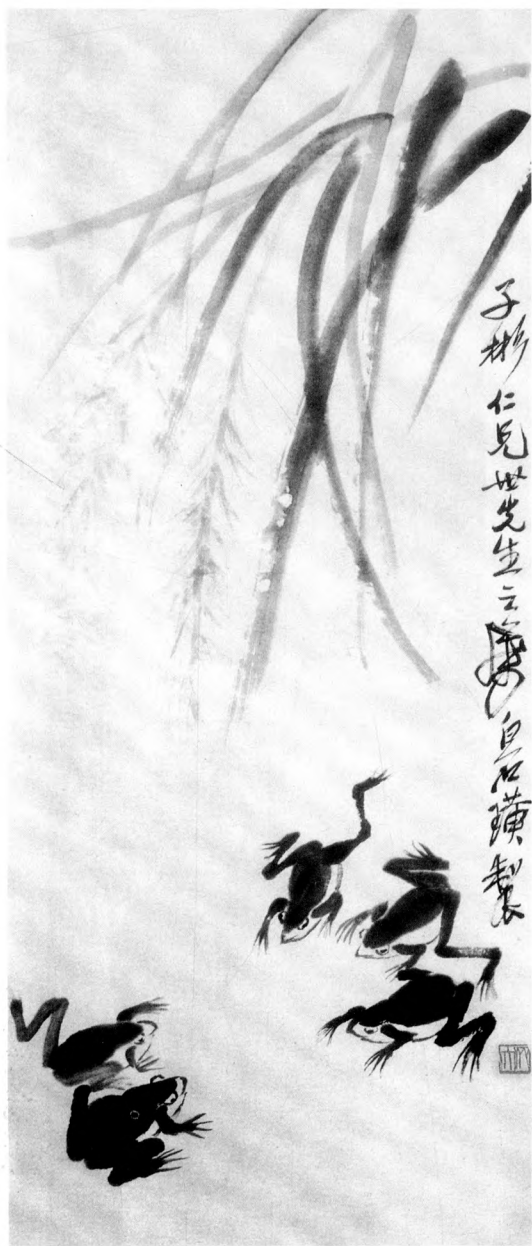 子彬仁兄世先生之屬白石璜製